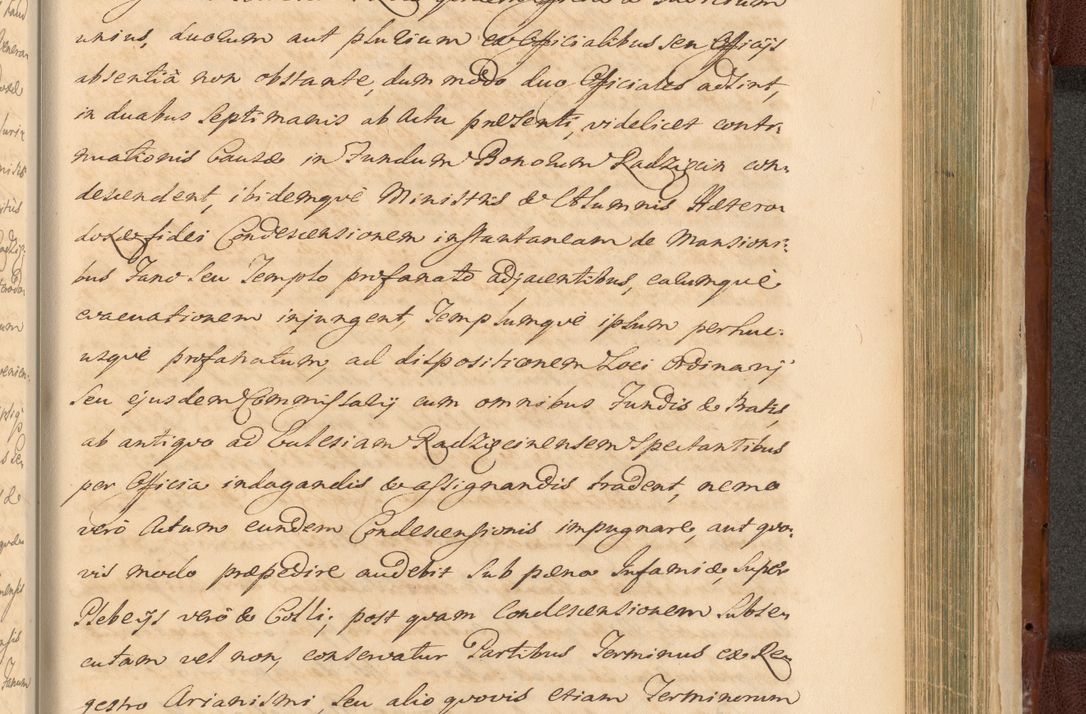 unius, duorum aut plurium ex Officialibus seu Officijs
absentiâ non obstante, dum modo duo Officiales adsint,
in duabus Septimanis ab Actu præsenti, videlicet conti:
nuationis Causæ in Fundum Bonorum Radzięcin con:
descendent, ibidemqvè Ministris & Alumnis Hætero:
doxæ fidei Condescensionem instantaneam de Mansioni:
bus Fano seu Templo profanato adjacentibus, earumqvè
evacuationem injungent, Templumqvè ipsum perhuc:
usqvè profanatum, ad dispositionem Loci Ordinarij
seu ejusdem Commissarij cum omnibus Fundis & Pratis,
ab antiqvo ad Ecclesiam Radzięcinensem Spectantibus
per Officia indagandis & assignandis tradent, nemo
verò Actum eundem Condescensionis impugnare, aut qvo:
vis modo præpedire audebit sub pæna Infamiæ, super
Plebejis verò & Colli; post qvam Condescensionem subse:
cutam vel non, conservatur Partibus Terminus ex Re
gestro Arianismi, seu alio qvovis etiam Terminorum